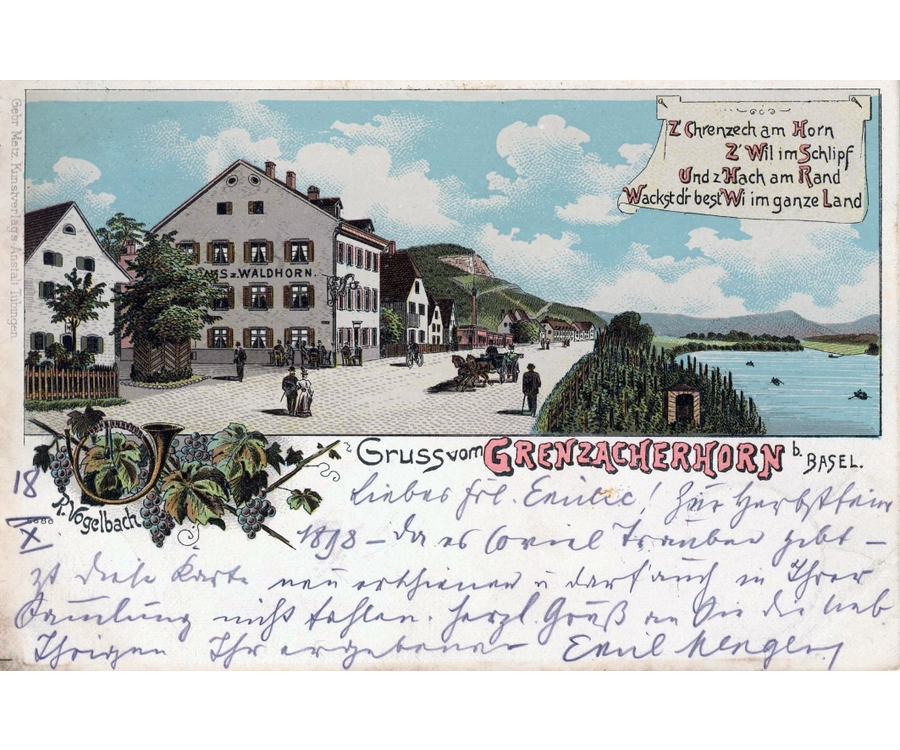 Z' Chrenzech am Horn
Z' Wil im Schlipf
Und z Hach am Rand
Wackst d'r best Wi im ganze Land
Gebr. Metz, Kunstverlags-Anstalt Tübingen.
S z. WALDHORN.
Gruss vom GRENZACHERHORN b. BASEL.
R. Vogelbach
18
X
Liebes Frl. Emilie! Zur Herbstfeier
1898 – da es soviel Trauben gibt –
ist diese Karte neu erschienen u darf auch in Ihrer
Sammlung nicht fehlen. Herzl. Gruß an Sie die lieb.
Ihrigen Ihr ergebener Emil